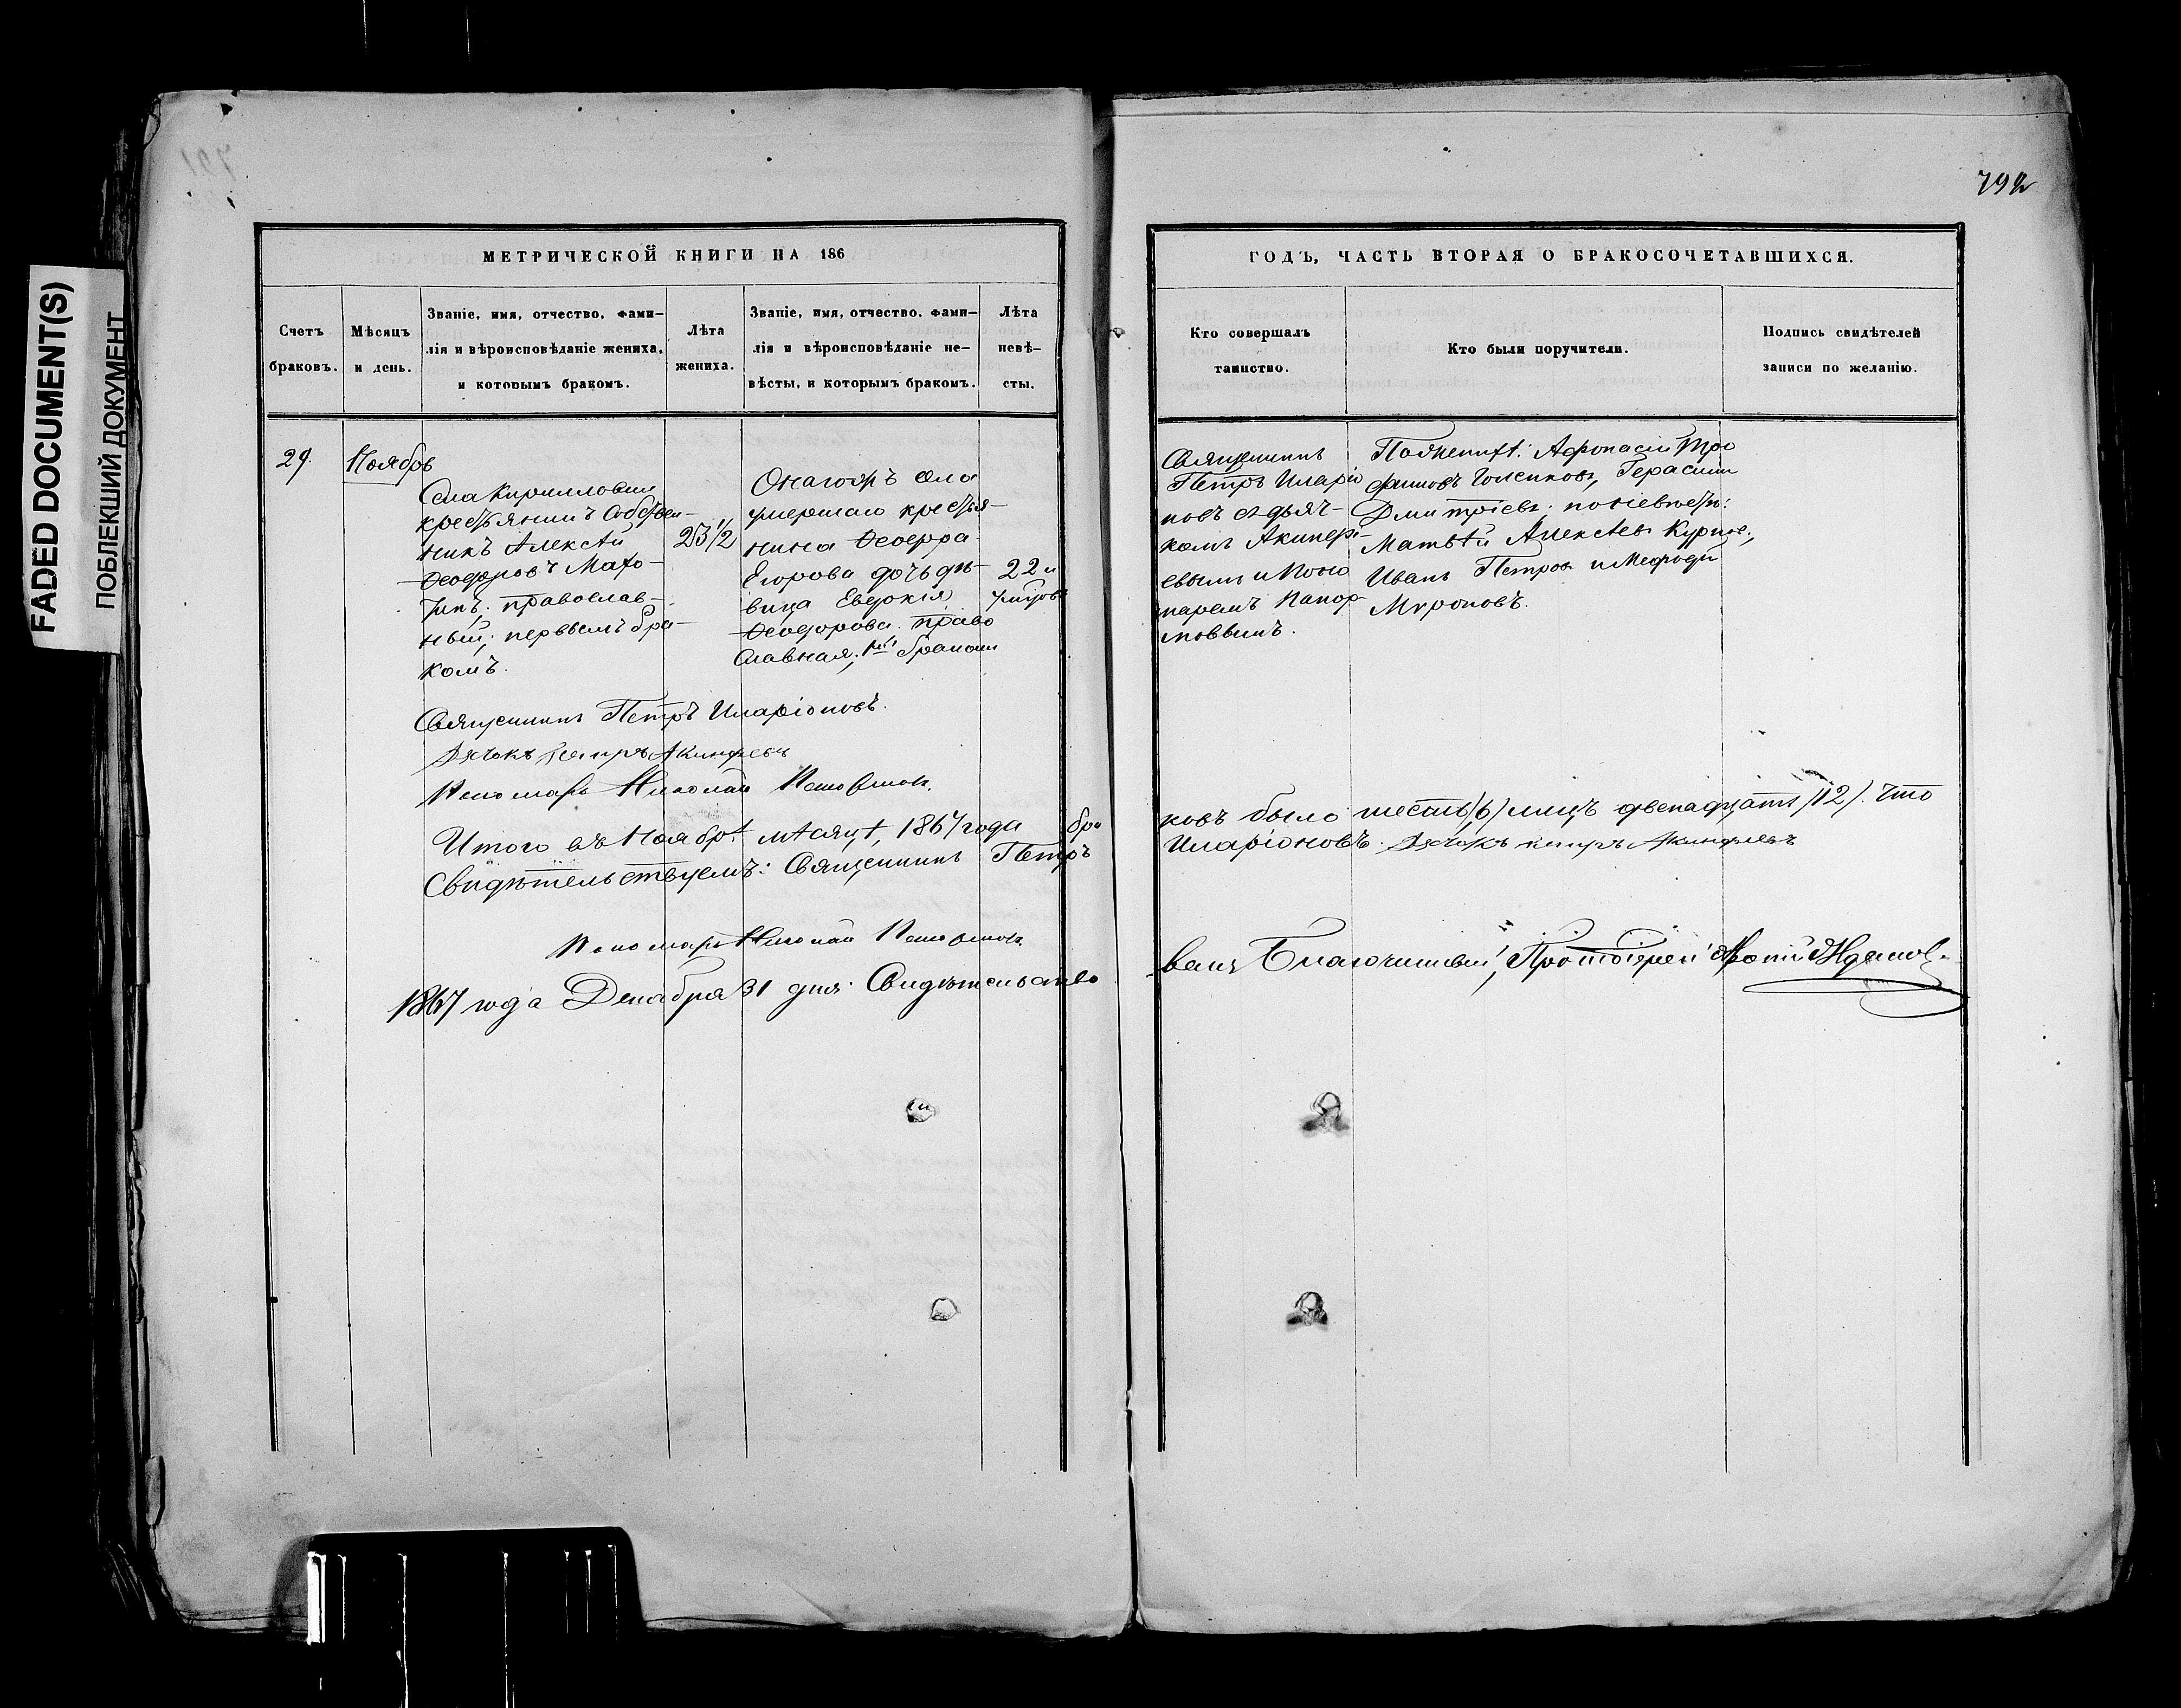 FADED DOCUMENT(S)
ПОБЛЕКШИЙ ДОКУМЕНТ
792
МЕТРИЧЕСКОЙ КНИГИ НА 186
Счетъ
браковъ.
Мѣсяцъ
и день.
Званіе, имя, отчество, фами-
лія и вѣроисповѣданіе жениха,
и которымъ бракомъ.
Лѣта
жениха.
Званіе, имя, отчество, фами-
лія и вѣроисповѣданіе не-
вѣсты, и которымъ бракомъ.
Лѣта
невѣ-
сты.
29.
Ноябрь
Села Кирилловки
крестьянинъ собствен-
никъ Алексѣй
Ѳеодоровъ
православ-
ный; первымъ бра-
комъ.
23 1/2
Онагожъ села
умершаго крестья-
нина Ѳеодора
Егорова дочь дѣ-
вица Евдокія
Ѳеодорова. право
славная; бракомъ
22 и
Священникъ Петръ Иларіоновъ.
Дячокъ Петръ Акинфіевъ
Пономарь Николай
Итого въ Ноябрѣ мѣсяцѣ 1867 года бра
Свидѣтельствуемъ: Священникъ Петръ
Пономарь Николай
1867 года Декабря 31 дня. Свидѣтельство
ГОДЪ, ЧАСТЬ ВТОРАЯ О БРАКОСОЧЕТАВШИХСЯ.
Кто совершалъ
таинство.
Кто были поручители.
Подпись свидѣтелей
записи по желанію.
Священникъ
Петръ Иларіо
новъ съ дьяч-
комъ Акинфі-
евымъ и Поно
маремъ
По женихѣ: Афонасій Тро
фимовъ Герасим
Дмитріевъ; по невѣстѣ:
Матвѣй Алексѣевъ
Иванъ Петровъ и Мефодій
Мироновъ.
ковъ было шесть /6/ лицъ двенадцать /12/. Что
Иларіоновъ. Дячокъ Петръ Акинфіевъ
валъ Благочинный, Протоіерей